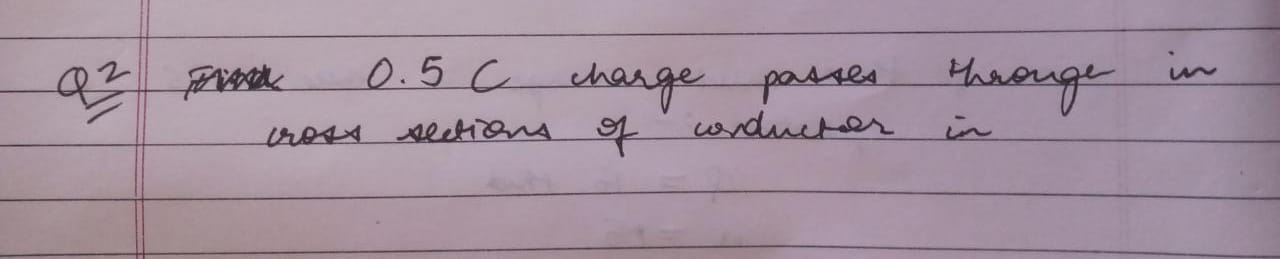 Q2 0.5 C charge passes througe in
cross sections of conductor in